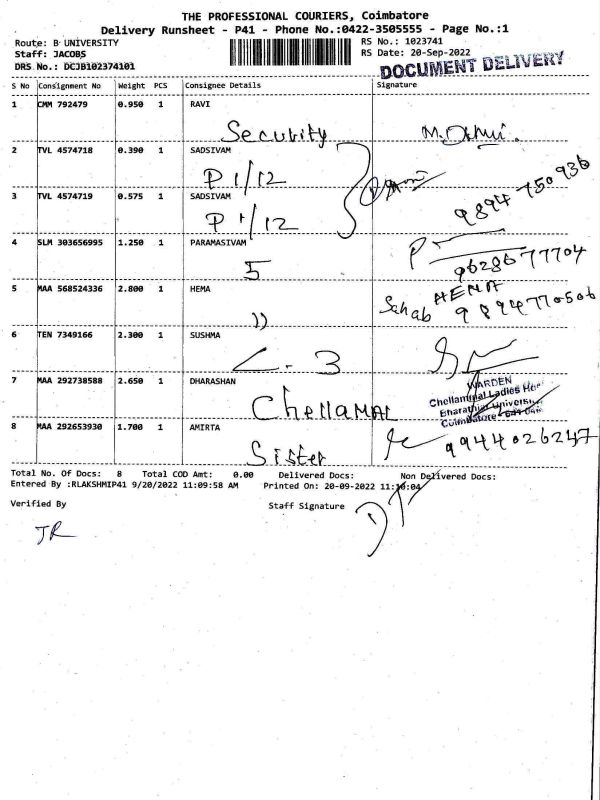 THE PROFESSIONAL COURIERS, Coimbatore
Delivery Runsheet - P41 - Phone No.:0422-3505555 - Page No.:1
Route: B UNIVERSITY
RS No.: 1023741
Staff: JACOBS
RS Date: 20-Sep-2022
DRS No.: DCJB102374101
DOCUMENT DELIVERY
S No Consignment No Weight PCS Consignee Details Signature
1 CMM 792479 0.950 1 RAVI
Security
2 TVL 4574718 0.390 1 SADSIVAM
P 1/12
3 TVL 4574719 0.575 1 SADSIVAM
P 1/12 9894 750936
4 SLM 303656995 1.250 1 PARAMASIVAM
5 9628677704
5 MAA 568524336 2.800 1 HEMA HEMA
)) Sahab 9894770506
6 TEN 7349166 2.300 1 SUSHMA
L - 3
7 MAA 292738588 2.650 1 DHARASHAN WARDEN
Chellammal Ladies
CHellaMAL Bharathiar University
Coimbatore
8 MAA 292653930 1.700 1 AMIRTA
Sister 9944026247
Total No. Of Docs: 8 Total COD Amt: 0.00 Delivered Docs: Non Delivered Docs:
Entered By :RLAKSHMIP41 9/20/2022 11:09:58 AM Printed On: 20-09-2022 11:10:04
Verified By Staff Signature
JR